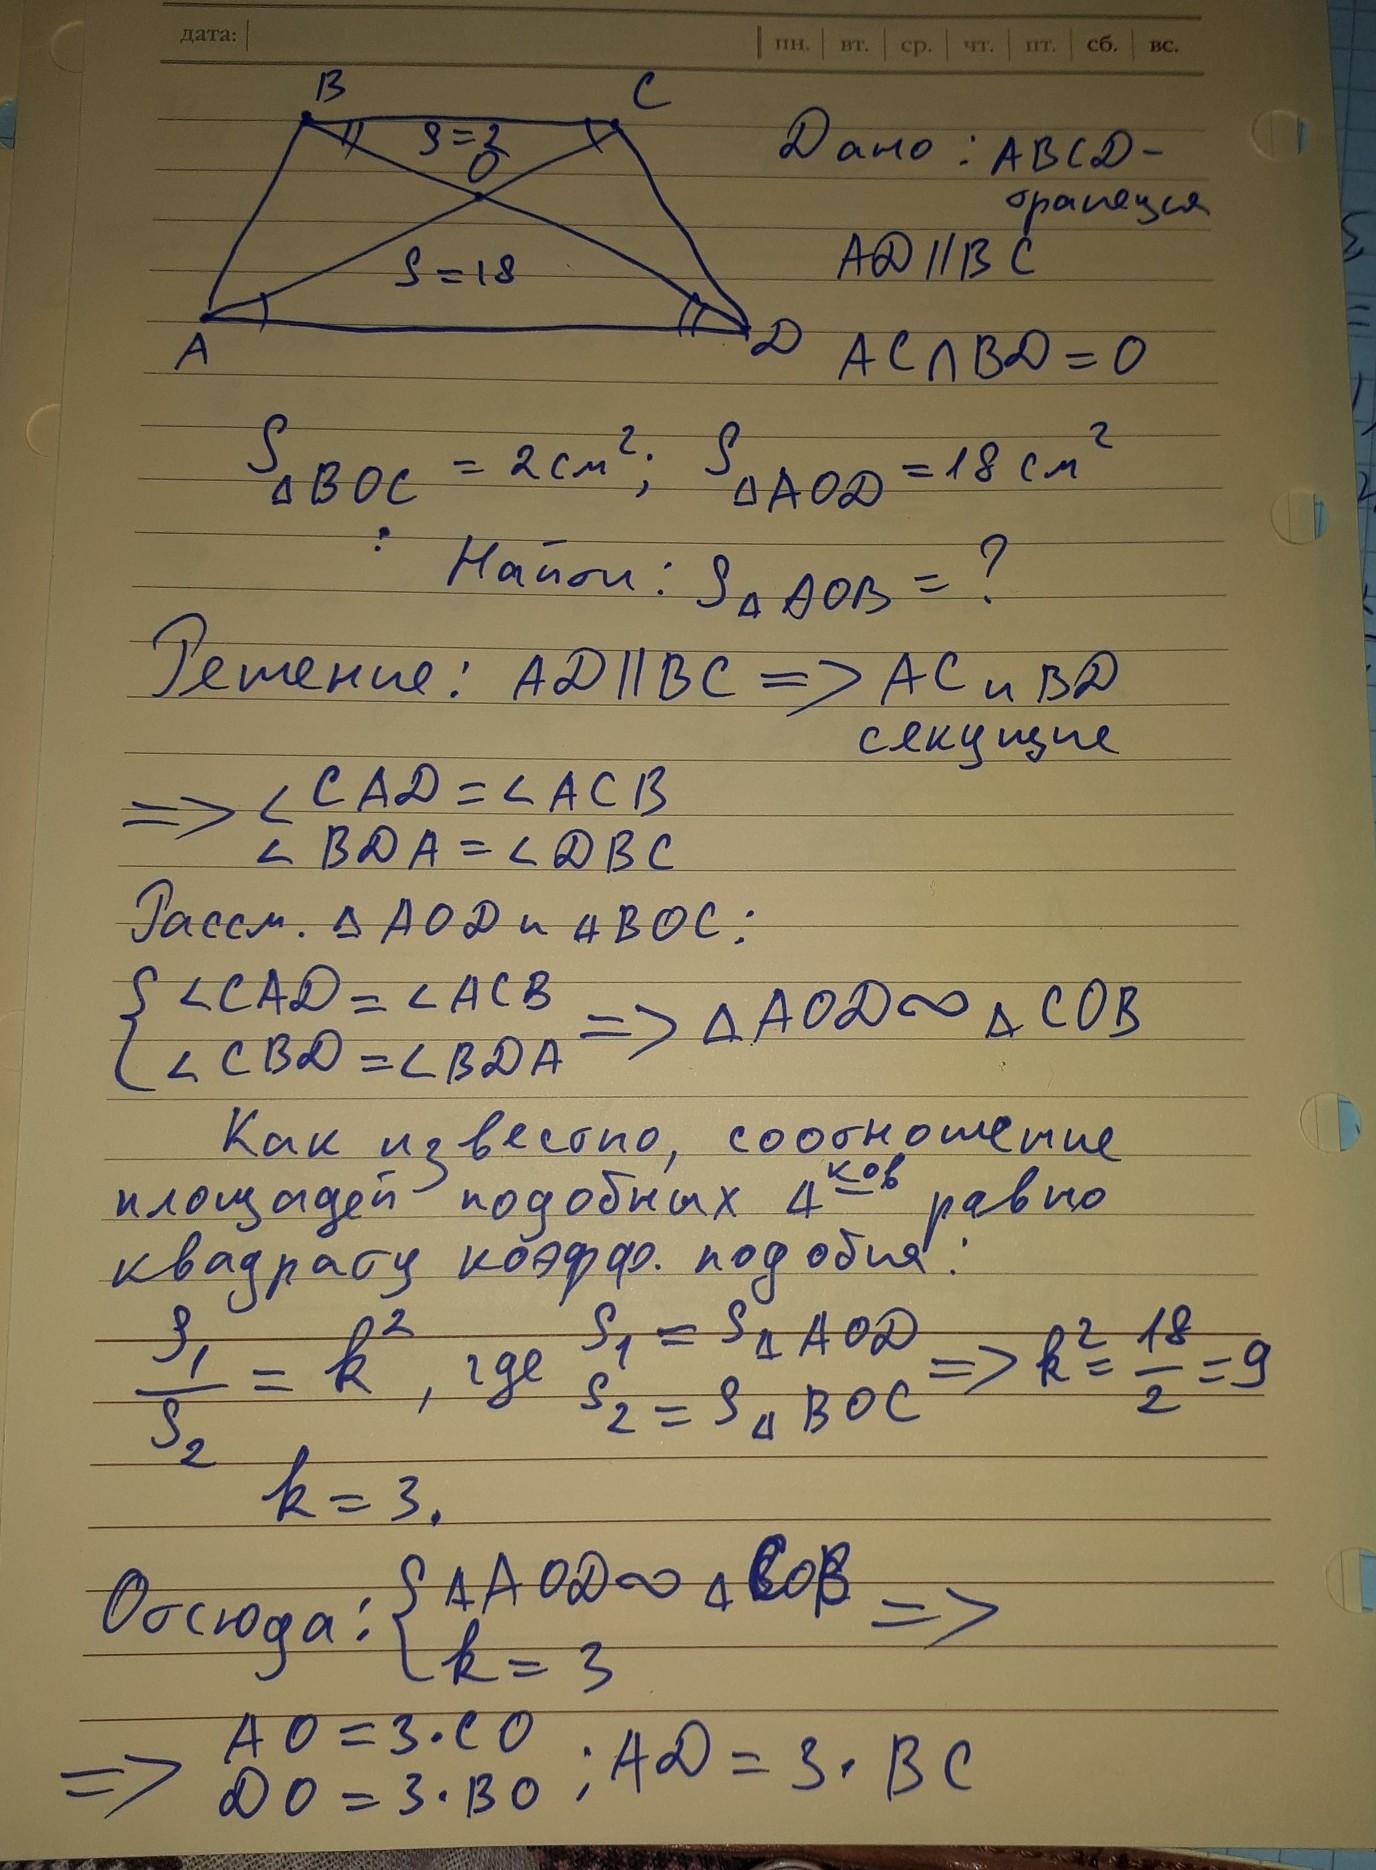 дата: пн. вт. ср. чт. пт. сб. вс.
B C
S=2
O
S=18
A D
Дано: ABCD-
трапеция
AD||BC
AC∩BD=O
S△BOC = 2см²; S△AOD = 18 см²
: Найти: S△AOB = ?
Решение: AD||BC => AC и BD
секущие
=> ∠CAD = ∠ACB
∠BDA = ∠DBC
Рассм. △AOD и △BOC:
{ ∠CAD = ∠ACB
∠CBD = ∠BDA => △AOD ∞ △COB
Как известно, соотношение
площадей подобных △ков равно
квадрату коэфф. подобия:
S₁/S₂ = k², где S₁ = S△AOD
S₂ = S△BOC => k² = 18/2 = 9
k = 3.
Отсюда: { △AOD ∞ △COB
k = 3 =>
=> AO = 3·CO
DO = 3·BO ; AD = 3·BC